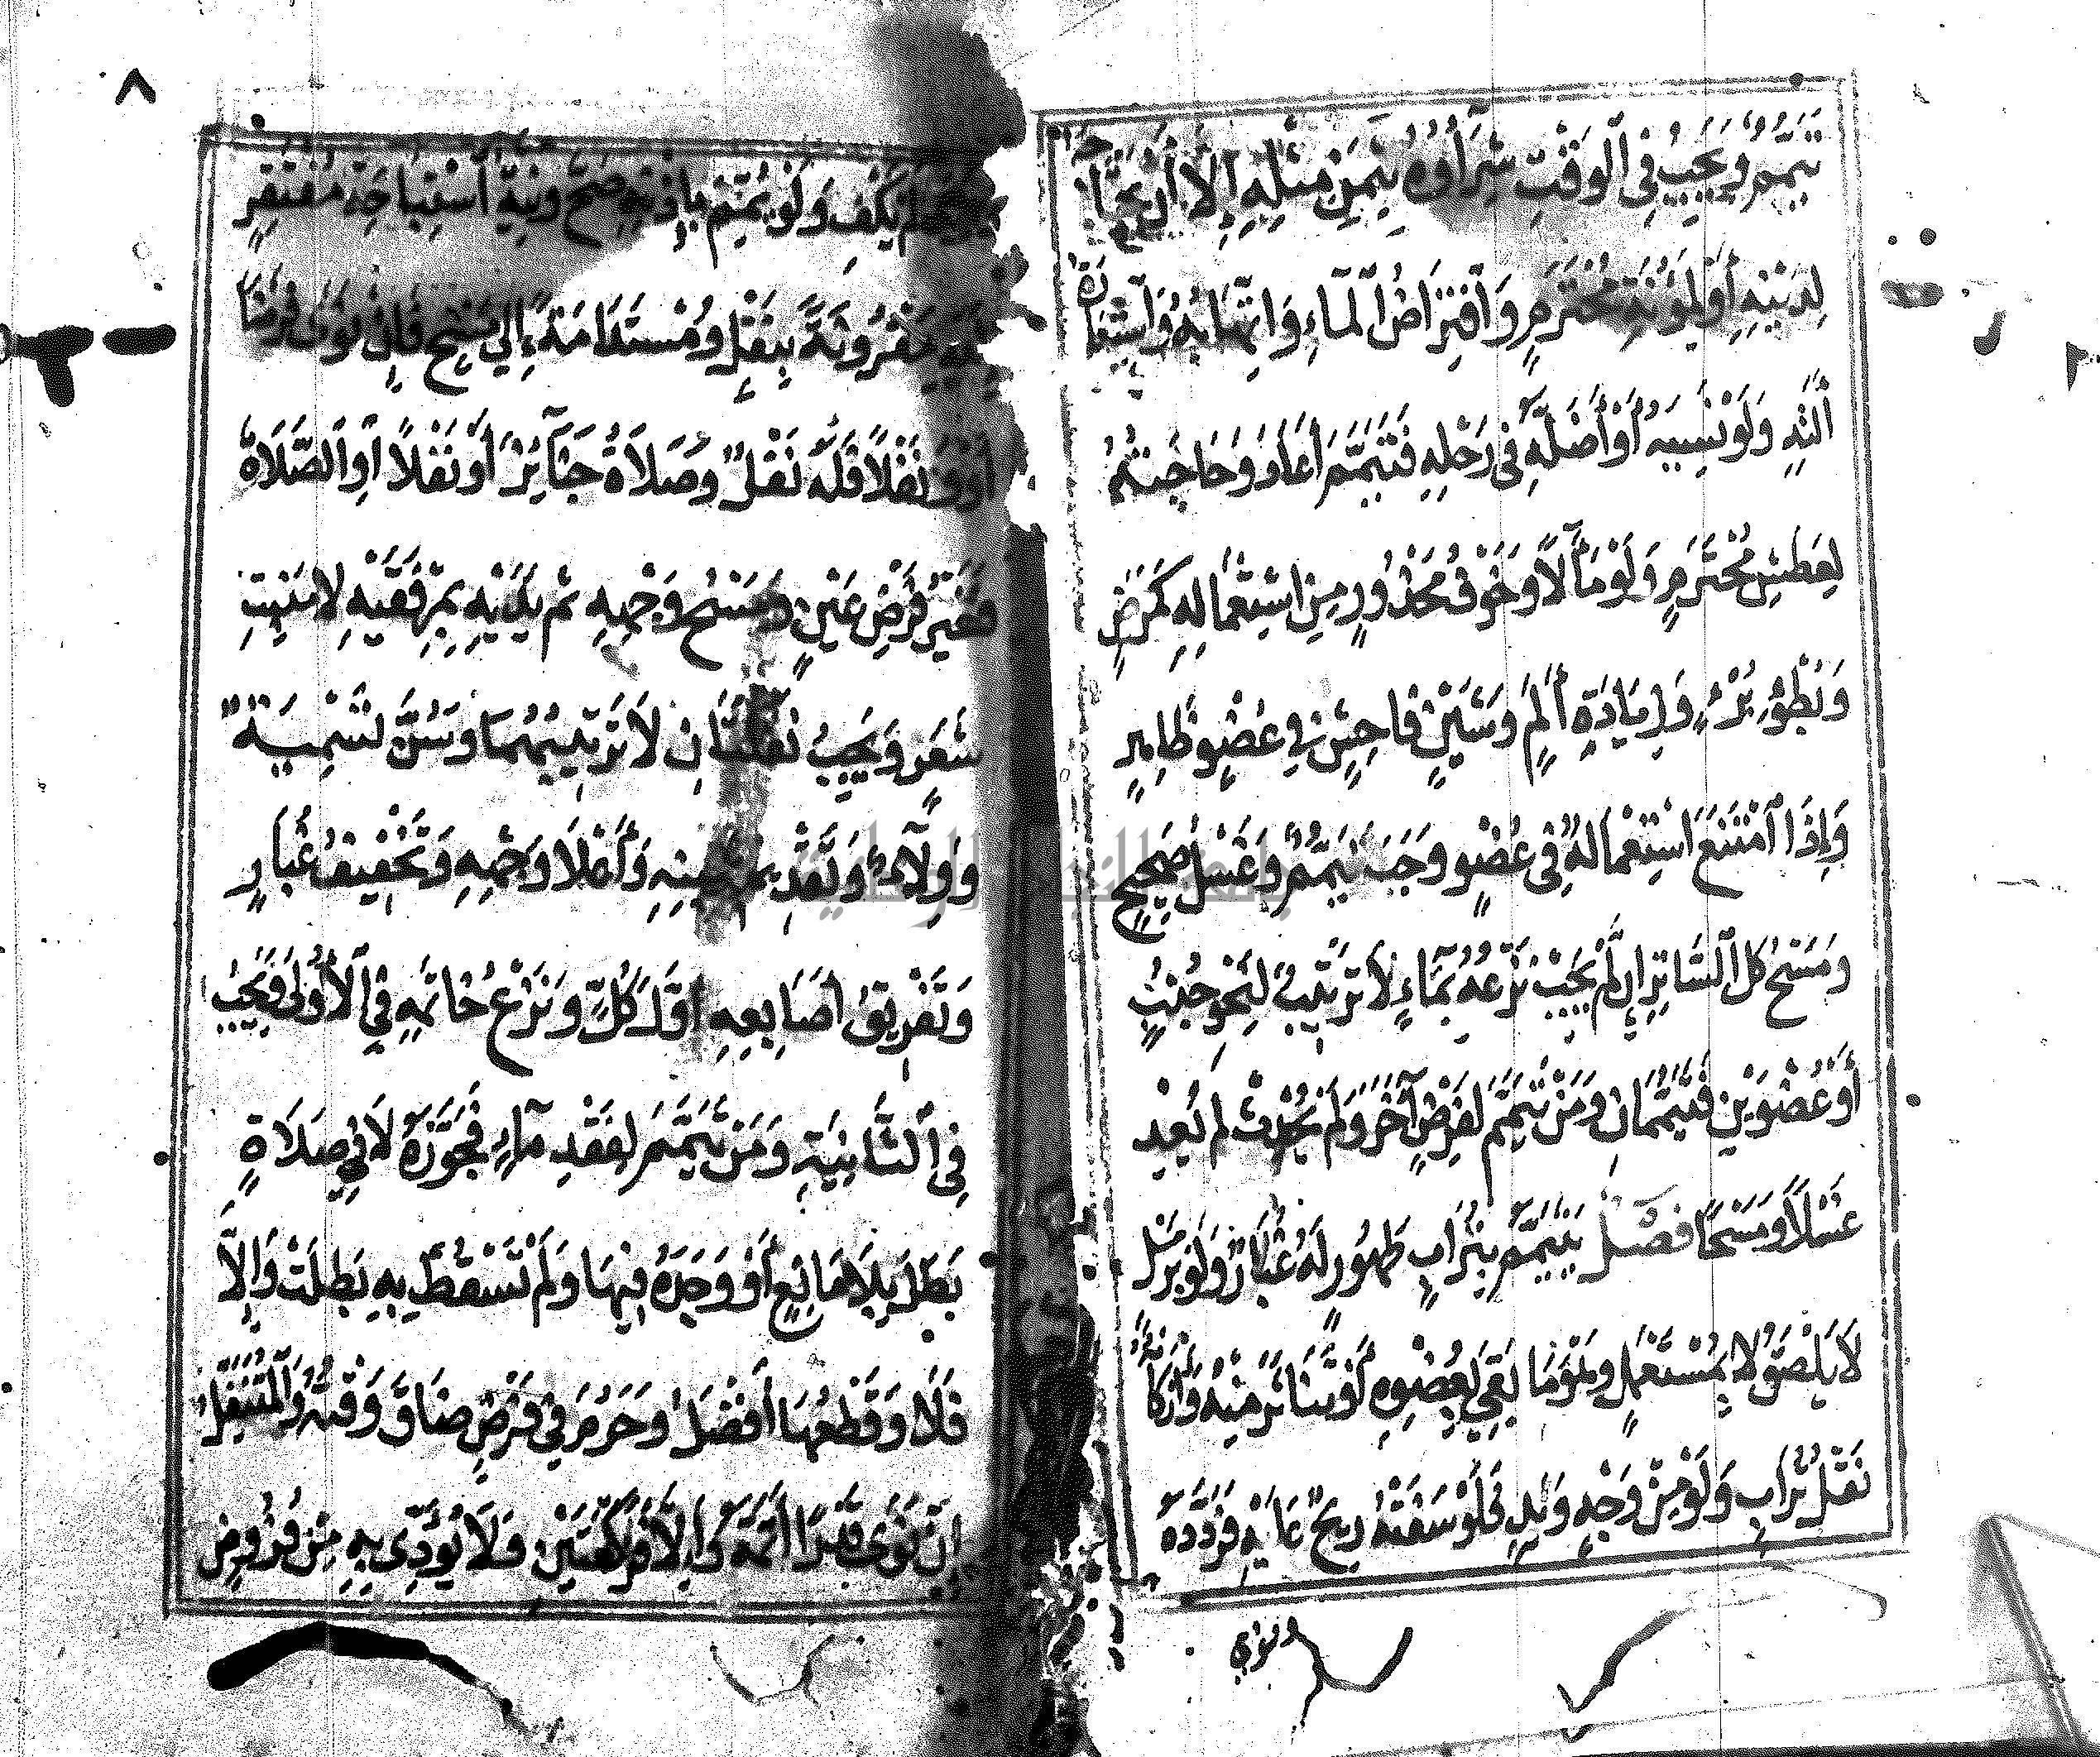 تَيَمَّمُ وَيَجِبُ فِي الْوَقْتِ شِرَاؤُهُ بِثَمَنِ مِثْلِهِ إِلَّا أَنْ يَحْتَاجَ
لِدَيْنِهِ أَوْ لِمُؤْنَةِ مُحْتَرَمٍ وَاقْتِرَاضُ الْمَاءِ وَاتِّهَابُهُ وَاسْتِعَارَةُ
آلَتِهِ وَلَوْ نَسِيَهُ أَوْ أَضَلَّهُ فِي رَحْلِهِ فَتَيَمَّمَ أَعَادَ وَحَاجَتُهُ
لِعَطَشِ مُحْتَرَمٍ وَلَوْ مَآلًا وَخَوْفُ مَحْذُورٍ مِنِ اسْتِعْمَالِهِ كَمَرَضٍ
وَبُطْؤِ بُرْءٍ وَزِيَادَةِ أَلَمٍ وَشَيْنٍ فَاحِشٍ فِي عُضْوٍ ظَاهِرٍ
وَإِذَا امْتَنَعَ اسْتِعْمَالُهُ فِي عُضْوٍ وَجَبَ تَيَمُّمٌ وَغَسْلُ صَحِيحٍ
وَمَسْحُ كُلِّ السَّاتِرِ إِنْ لَمْ يَجِبْ نَزْعُهُ بِمَاءٍ لَا تَرْتِيبٌ لِنَحْوِ جُنُبٍ
أَوْ عُضْوَيْنِ فَتَيَمُّمَانِ وَمَنْ تَيَمَّمَ لِفَرْضٍ آخَرَ وَلَمْ يُحْدِثْ لَمْ يُعِدْ
غَسْلًا وَمَسْحًا فَصْلٌ يَتَيَمَّمُ بِتُرَابٍ طَهُورٍ لَهُ غُبَارٌ وَلَوْ بِرَمْلٍ
لَا يَلْصَقُ لَا بِمُسْتَعْمَلٍ وَهُوَ مَا بَقِيَ بِعُضْوِهِ أَوْ تَنَاثَرَ مِنْهُ وَأَرْكَانُهُ
نَقْلُ تُرَابٍ وَلَوْ مِنْ وَجْهٍ وَيَدٍ فَلَوْ سَفَتْهُ رِيحٌ عَلَيْهِ فَرَدَّدَهُ
وَنَوَى
لَمْ يَكْفِ وَلَوْ يُمِّمَ بِإِذْنِهِ صَحَّ وَنِيَّةُ اسْتِبَاحَةِ مُفْتَقِرٍ
إِلَيْهِ مَقْرُونَةً بِنَقْلٍ وَمُسْتَدَامَةً إِلَى مَسْحٍ فَإِنْ نَوَى فَرْضًا
أَوْ وَنَفْلًا فَلَهُ نَفْلٌ وَصَلَاةُ جَنَائِزَ أَوْ نَفْلًا أَوِ الصَّلَاةَ
فَغَيْرُ فَرْضِ عَيْنٍ وَمَسْحُ وَجْهِهِ ثُمَّ يَدَيْهِ بِمِرْفَقَيْهِ لَا مَنْبِتِ
شَعَرٍ وَيَجِبُ نَقْلَتَانِ لَا تَرْتِيبُهُمَا وَسُنَّ تَسْمِيَةٌ
وَوِلَاءٌ وَتَقْدِيمُ يَمِينِهِ وَأَعْلَا وَجْهِهِ وَتَخْفِيفُ غُبَارٍ
وَتَفْرِيقُ أَصَابِعِهِ أَوَّلَ كُلٍّ وَنَزْعُ خَاتَمِهِ فِي الْأُولَى وَيَجِبُ
فِي الثَّانِيَةِ وَمَنْ تَيَمَّمَ لِفَقْدِ مَاءٍ فَجَوَّزَهُ لَا فِي صَلَاةٍ
بَطَلَ بِلَا مَانِعٍ أَوْ وَجَدَهُ فِيهَا وَلَمْ تَسْقُطْ بِهِ بَطَلَتْ وَإِلَّا
فَلَا وَقَطْعُهَا أَفْضَلُ وَحَرُمَ فِي فَرْضٍ ضَاقَ وَقْتُهُ وَالْمُتَنَفِّلُ
إِنْ نَوَى قَدْرًا أَتَمَّهُ وَإِلَّا فَرَكْعَتَيْنِ وَلَا يُؤَدِّي بِهِ مِنْ فُرُوضٍ